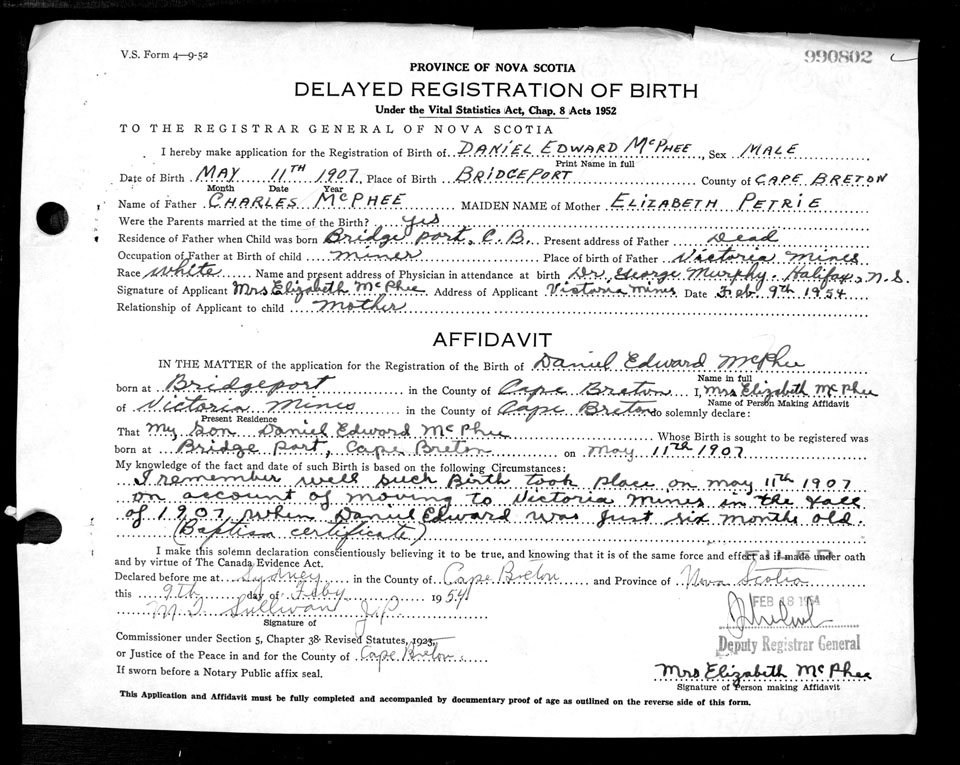 V.S. Form 4—9-52
990802
PROVINCE OF NOVA SCOTIA
DELAYED REGISTRATION OF BIRTH
Under the Vital Statistics Act, Chap. 8 Acts 1952
TO THE REGISTRAR GENERAL OF NOVA SCOTIA
I hereby make application for the Registration of Birth of DANIEL EDWARD McPHEE, Sex MALE
Print Name in full
Date of Birth MAY 11TH 1907, Place of Birth BRIDGEPORT County of CAPE BRETON
Month Date Year
Name of Father CHARLES McPHEE MAIDEN NAME of Mother ELIZABETH PETRIE
Were the Parents married at the time of the Birth? Yes
Residence of Father when Child was born Bridgeport, C.B. Present address of Father Dead
Occupation of Father at Birth of child miner Place of birth of Father Victoria Mines
Race White Name and present address of Physician in attendance at birth Dr. George Murphy. Halifax, N.S.
Signature of Applicant Mrs Elizabeth McPhee Address of Applicant Victoria Mines Date Feb. 9th 1954
Relationship of Applicant to child Mother
AFFIDAVIT
IN THE MATTER of the application for the Registration of the Birth of Daniel Edward McPhee
Name in full
born at Bridgeport in the County of Cape Breton I, Mrs Elizabeth McPhee
Name of Person Making Affidavit
of Victoria Mines in the County of Cape Breton do solemnly declare:
Present Residence
That My Son Daniel Edward McPhee Whose Birth is sought to be registered was
born at Bridge Port, Cape Breton on May 11th 1907
My knowledge of the fact and date of such Birth is based on the following Circumstances:
I remember well such Birth took place on may 11th 1907
on account of moving to Victoria Mines in the fall
of 1907 when Daniel Edward was just six months old.
(Baptism certificate)
I make this solemn declaration conscientiously believing it to be true, and knowing that it is of the same force and effect as if made under oath
and by virtue of The Canada Evidence Act.
FILED
Declared before me at Sydney in the County of Cape Breton and Province of Nova Scotia
this 9th day of Feby 1954
FEB 18 1954
M. J. Sullivan J.P.
Signature of
Deputy Registrar General
Commissioner under Section 5, Chapter 38 Revised Statutes, 1923,
or Justice of the Peace in and for the County of Cape Breton.
If sworn before a Notary Public affix seal.
Mrs Elizabeth McPhee
Signature of Person making Affidavit
This Application and Affidavit must be fully completed and accompanied by documentary proof of age as outlined on the reverse side of this form.